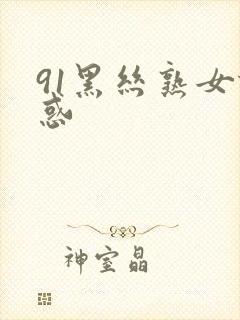 91黑丝熟女
惑
神室晶